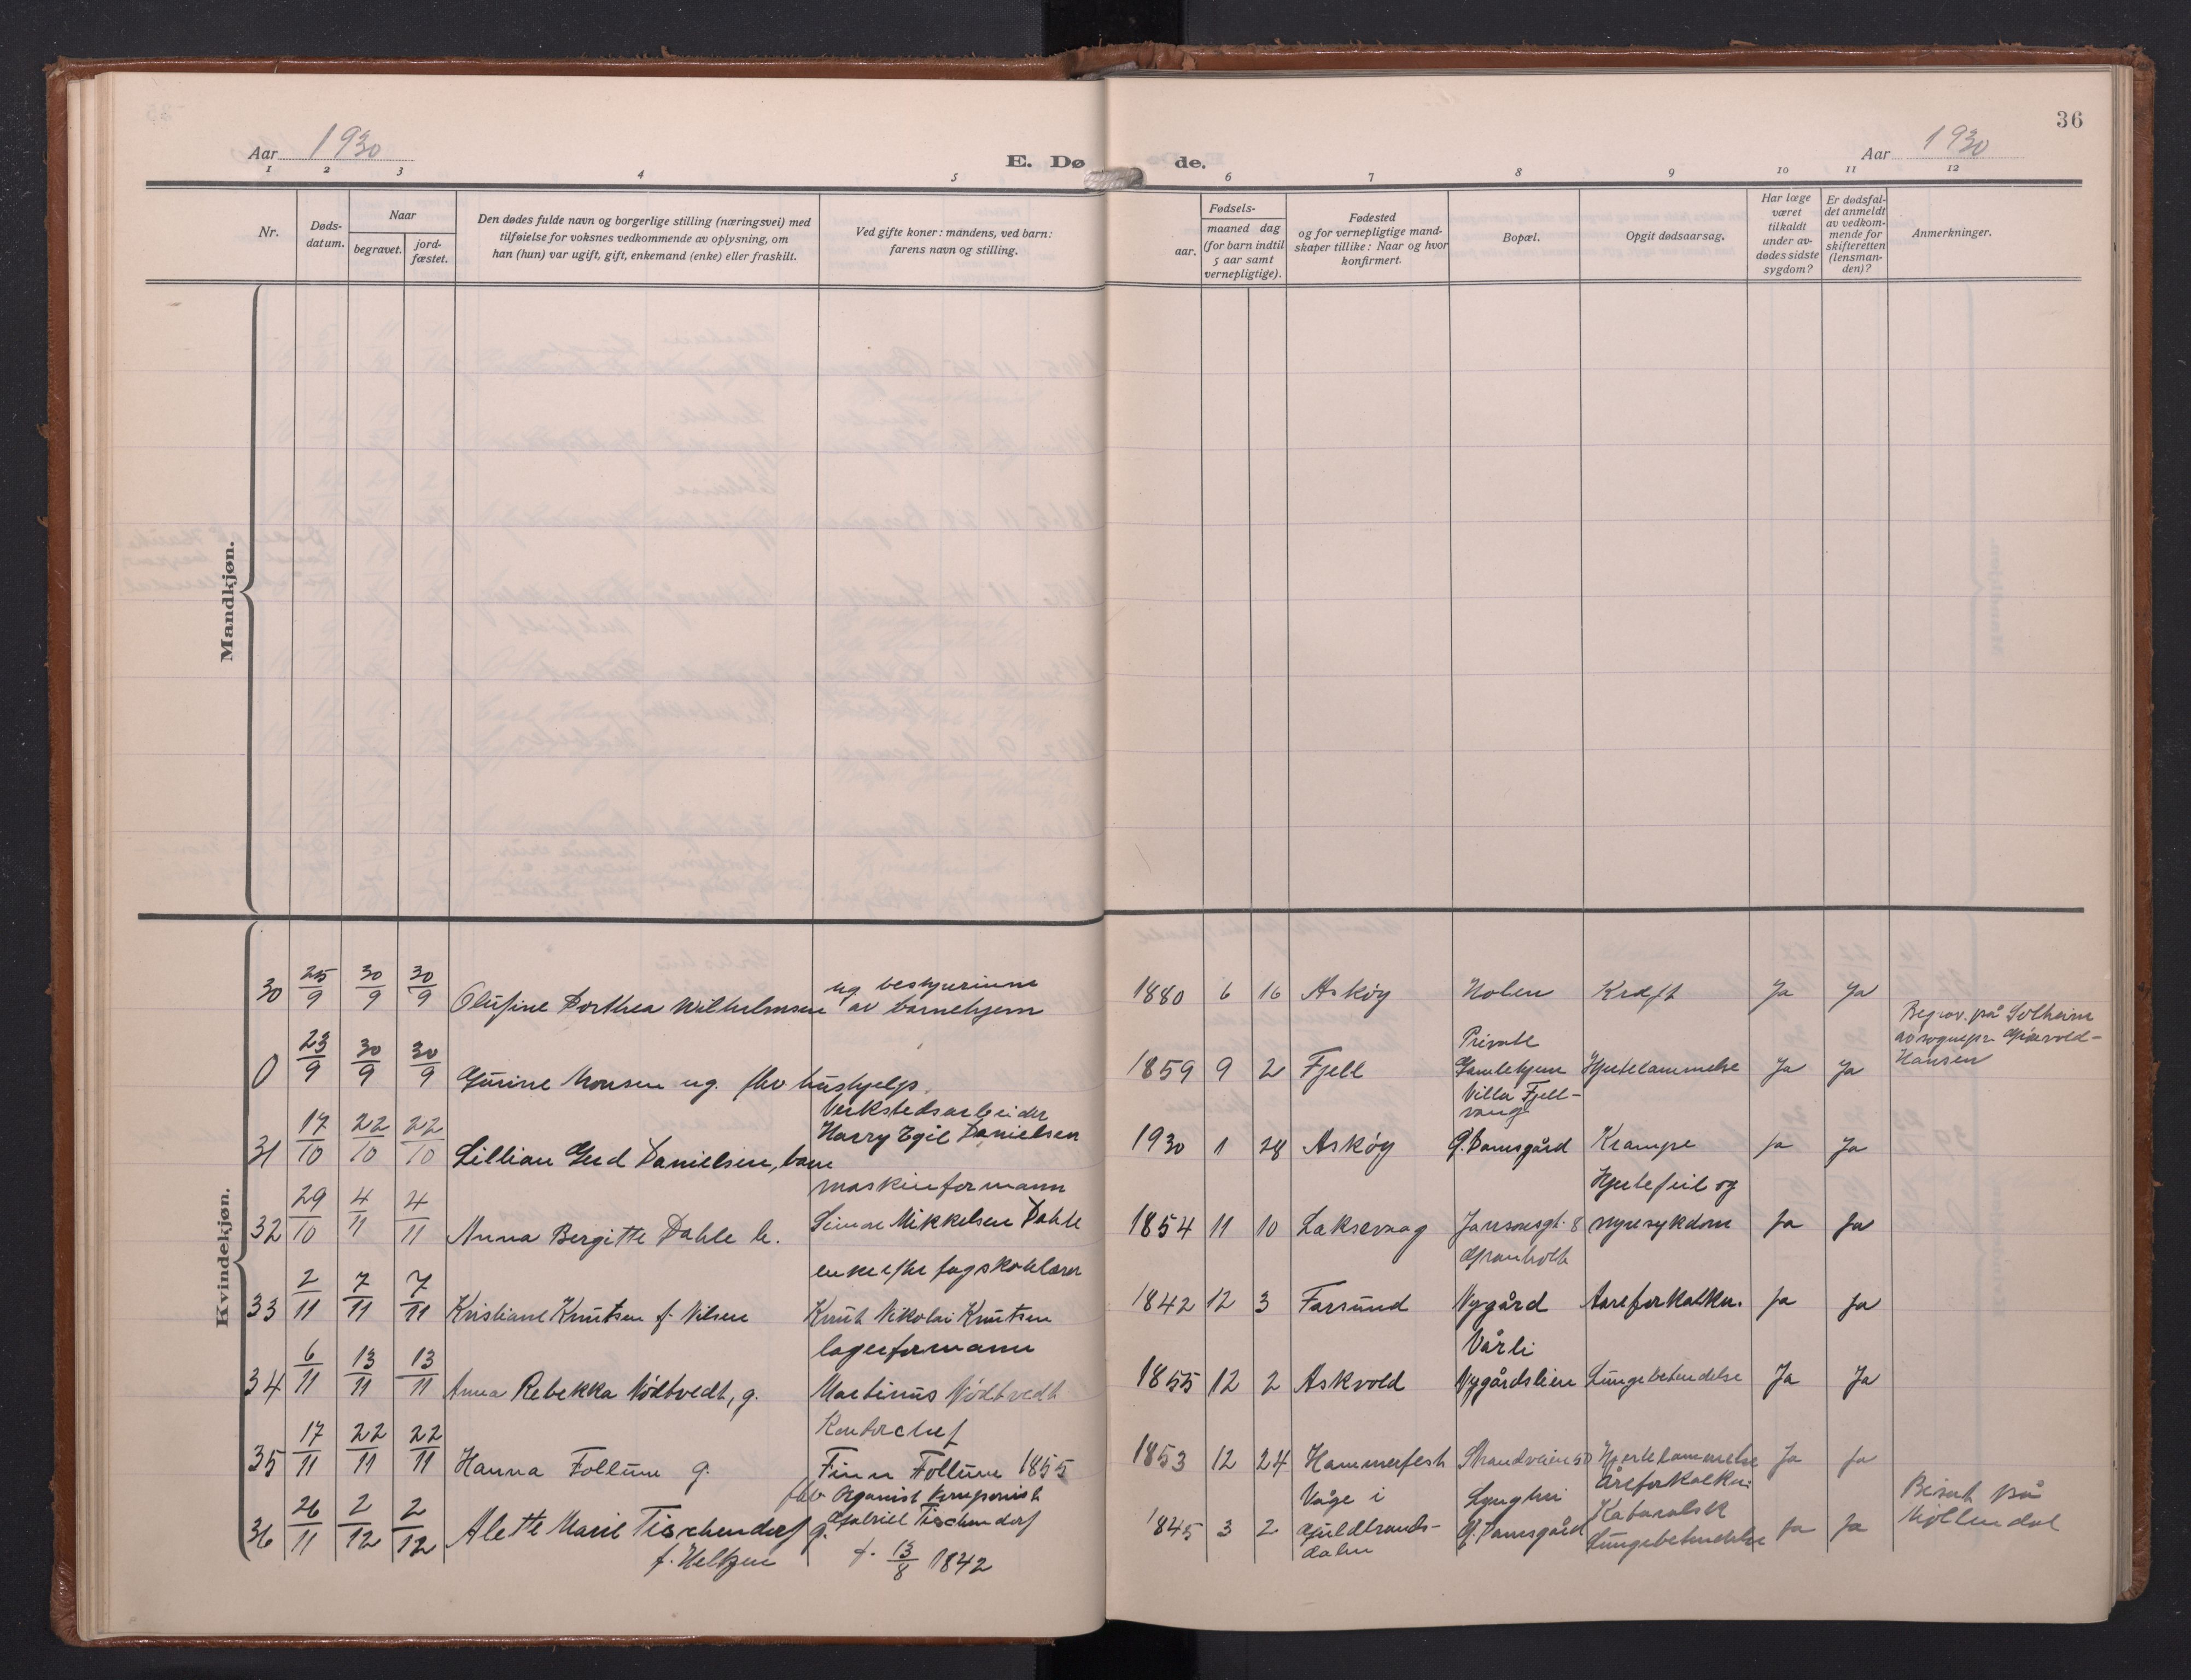 36
Aar 1930
E. Døde.
Aar 1930
1 2 3 4 5 6 7 8 9 10 11 12
Nr.
Døds-
datum.
Naar
begravet.
jord-
fæstet.
Den dødes fulde navn og borgerlige stilling (næringsvei) med
tilføielse for voksnes vedkommende av oplysning, om
han (hun) var ugift, gift, enkemand (enke) eller fraskilt.
Ved gifte koner: mandens, ved barn:
farens navn og stilling.
Fødsels-
aar.
maaned dag
(for barn indtil
5 aar samt
vernepligtige).
Fødested
og for vernepligtige mand-
skaper tillike: Naar og hvor
konfirmert.
Bopæl.
Opgit dødsaarsag.
Har læge
været
tilkaldt
under av-
dødes sidste
sygdom?
Er dødsfal-
det anmeldt
av vedkom-
mende for
skifteretten
(lensman-
den)?
Anmerkninger.
Mandkjøn.
Kvindekjøn.
30 25/9 30/9 30/9 Olufine Dorthea Wilhelmsen
ug bestyrerinne
av barnehjem
1880 6 16 Askøy Holen Kræft Ja Ja
0 23/9 30/9 30/9 Gurine Monsen ug. fhv hushjelp.
1859 9 2 Fjell
Private
Gamlehjem
Villa Fjell-
vang
Hjertelammelse Ja Ja
Begrav. på Solheim
av sognepr. Grønvold-
Hansen
31 17/10 22/10 22/10 Lillian Gerd Danielsen, barn
Verkstedsarbeider
Harry Egil Danielsen
1930 1 28 Askøy G. Damsgård Krampe Ja Ja
32 29/10 4/11 4/11 Anna Bergitte Dahle e.
maskinformann
Simon Mikkelsen Dahle
1854 11 10 Laksevaag Jansonsgt. 8
Hjertefeil og
nyresykdom Ja Ja
33 2/11 7/11 7/11 Kristiane Knutsen f. Nilsen
enke efter fagskolelærer
Knut Nikolai Knutsen
1842 12 3 Farsund
Granholt
Nygård Aareforkalkn. Ja Ja
34 6/11 13/11 13/11 Anna Rebekka Nödtvedt, g.
lagerformann
Martinus Nödtvedt
1855 12 2 Askvold
Vårli
Nygårdslien Lungebetendelse Ja Ja
35 17/11 22/11 22/11 Hanna Follum g.
Kontorchef
Finn Follum 1855
1853 12 24 Hammerfest Strandveien 50 Hjertelammelse Ja Ja
36 26/11 2/12 2/12 Alette Marie Tischendorf g.
f. Heltzen
fhv Organist Komponist
Gabriel Tischendorf
f. 13/8 1842
1845 3 2
Våge i
Guldbrands-
dalen
Lynghei
G. Damsgård
Åreforkalkn.
Katarralsk
Lungebetendelse Ja Ja
Bisat på
Möllendal